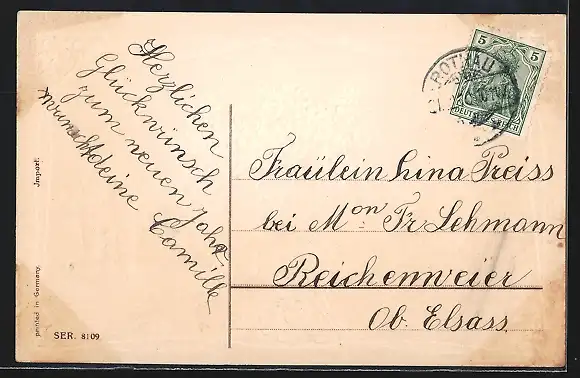 Herzlichen
Glückwunsch
zum neuen Jahr
wünscht deine Camille
Fräulein Lina Preiss
bei Mon Fr Lehmann
Reichenweier
Ob. Elsass.
ROTHAU
5 5
DEUTSCHES REICH
Import.
printed in Germany.
SER. 8109